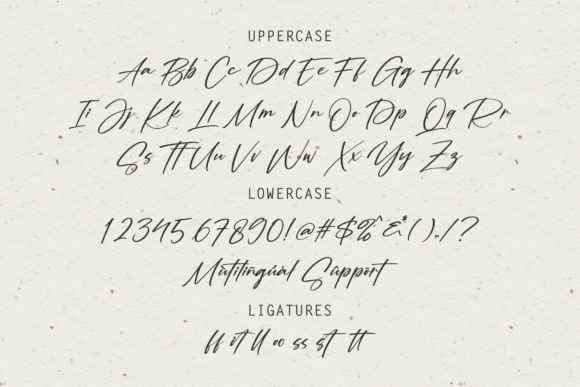 UPPERCASE
Aa Bb Cc Dd Ee Ff Gg Hh
Ii Jj Kk Ll Mm Nn Oo Pp Qq Rr
Ss Tt Uu Vv Ww Xx Yy Zz
LOWERCASE
1234567890!@#$%^&*().,/?
Mutilingual Support
LIGATURES
ff ot ll oo ss st tt